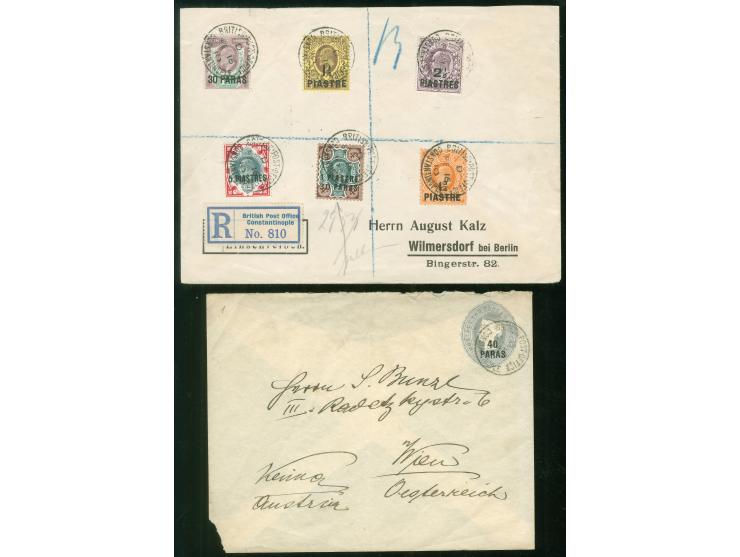 30 PARAS
1½
PIASTRE
2½
PIASTRES
5 PIASTRES
1 PIASTRE
30 PARAS
PIASTRE
R
British Post Office
Constantinople
No. 810
Einschreiben.
Herrn August Kalz
Wilmersdorf bei Berlin
Bingerstr. 82.
40
PARAS
Herrn S. Bunzl
III. Radetzkystr. 6
Wien
Oesterreich
Vienna
Austria